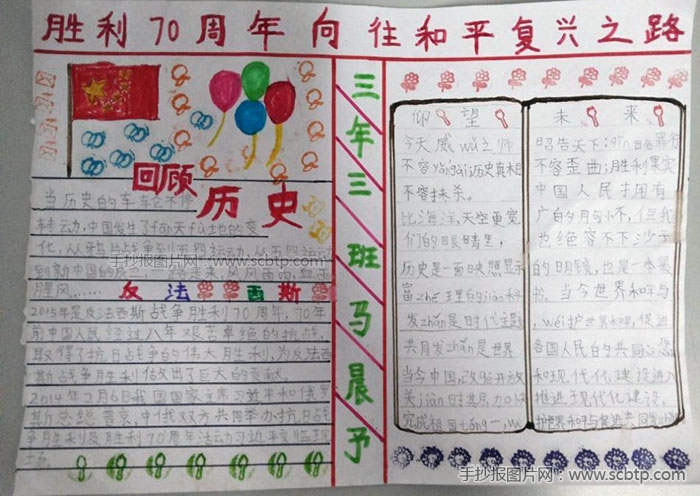 胜利70周年向往和平复兴之路
回顾历史
当历史的车车仑不停
转云力,中国发生了fān天fù土地的变
化,从牙片战争到五四运动,从五四运动
到新中国的成立,一路走来,风风雨雨,血雨
腥风……
反法西斯
2015年是反法西斯战争胜利70周年,70年
前中国人民经过八年艰苦卓绝的抗战,
取得了抗日战争的伟大胜利,为反法西
斯战争胜利做出了巨大的贡献。
2014年2月6日我国国家主席习近平和俄罗
斯总统普京,中俄双方共同举办抗日战
争胜利及胜利70周年活动习近平莅临现
场。
三年三班马晨予
仰望未来
今天威wǔ之师
不容 历史真木目
不容抹杀。
比海洋,天空更宽
们的眼睛里,
历史是一面映照
富zhé理的
发zhǎn是时代主题
共同发zhǎn是世界
当今中国,改革开放
关jiàn时其月力口快
完成祖国
昭告天下:
不容歪曲;胜利果实
中国人民拥有
广白勺月句小不,但我
也绝容不下沙子
的明镜,也是一本
书。当今世界和平与
,wéi护世界和平,促进
各国人民白勺共同心愿
和现代化建设进入
推进现代化建设,
护世界和平与促进共同发zhǎn
手抄报图片网·www.scbtp.com
手抄报图片网-www.scbtp.com